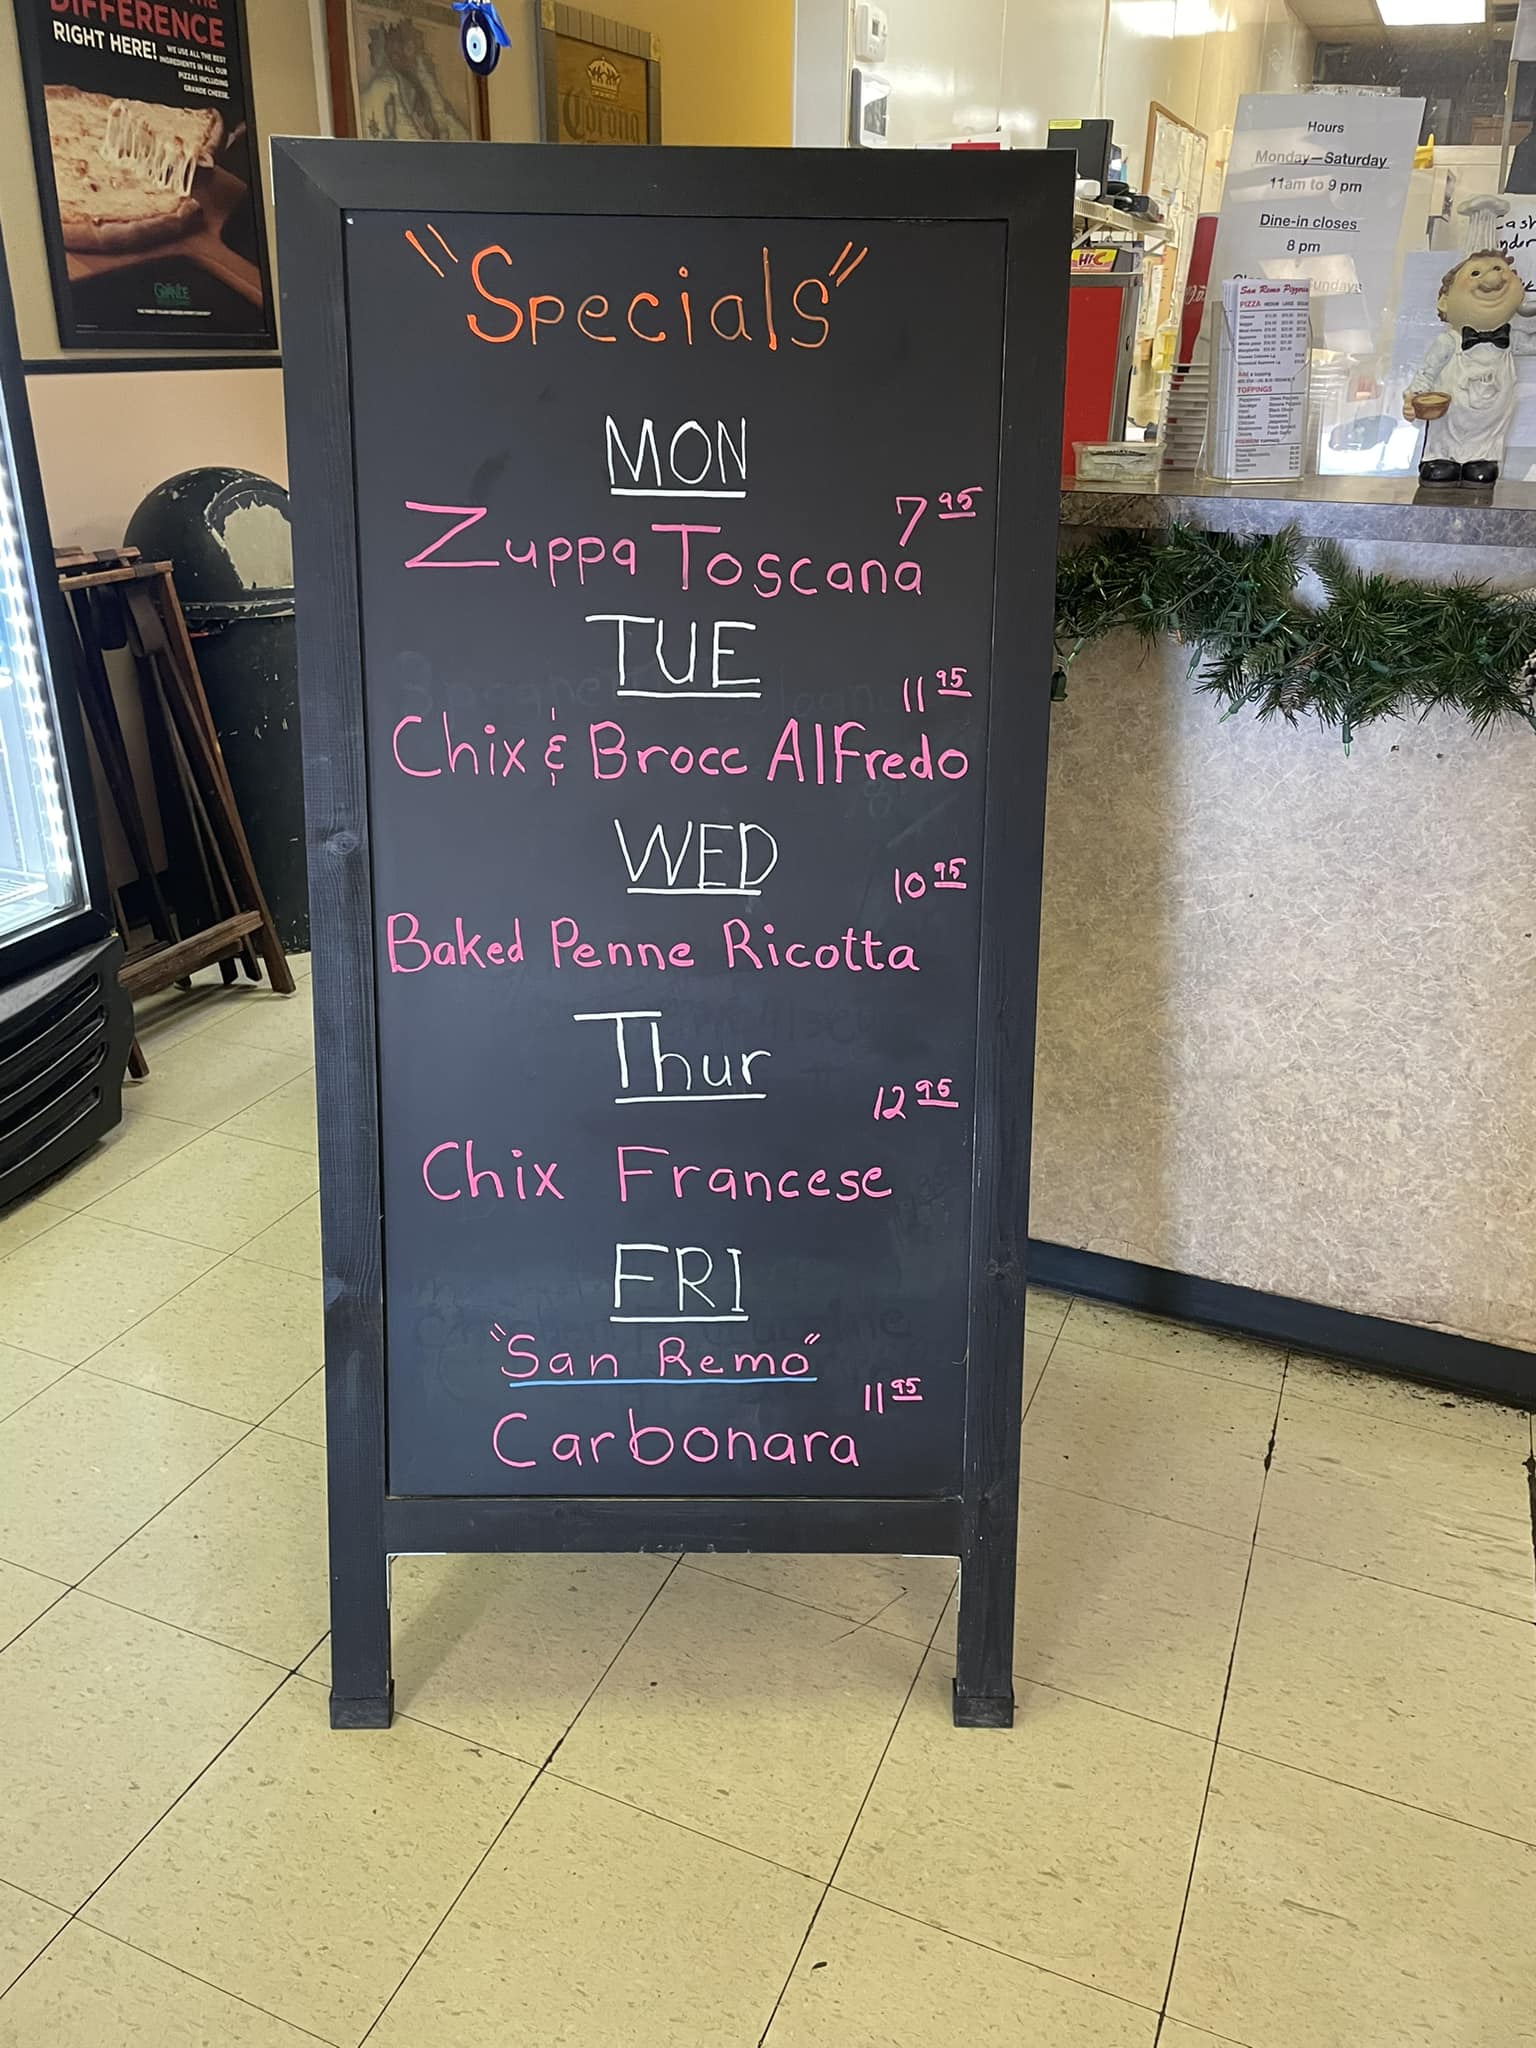 THE
DIFFERENCE
RIGHT HERE!
WE USE ALL THE BEST
INGREDIENTS IN ALL OUR
PIZZAS INCLUDING
GRANDE CHEESE.
GRANDE
Corona
"Specials"
MON
7 95
Zuppa Toscana
TUE
11 95
Chix & Brocc Alfredo
WED
10 95
Baked Penne Ricotta
Thur
12 95
Chix Francese
FRI
"San Remo"
11 95
Carbonara
Hours
Monday—Saturday
11am to 9 pm
Dine-in closes
8 pm
Sundays
HI-C
San Remo Pizzeria
PIZZA
TOPPINGS